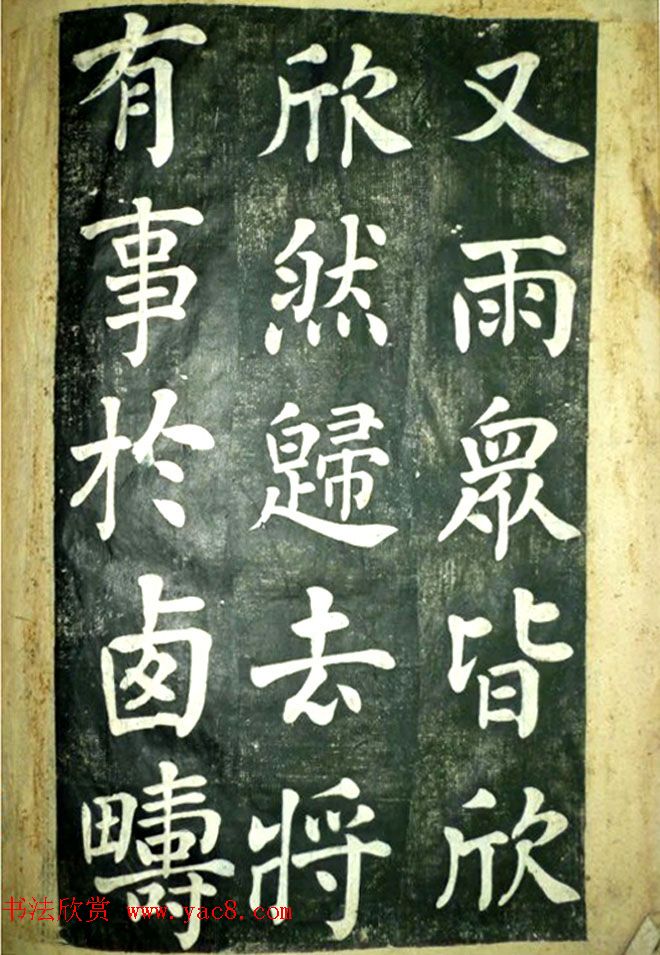 又雨衆皆欣
欣然歸去將
有事於卥疇
书法欣赏 www.yac8.com